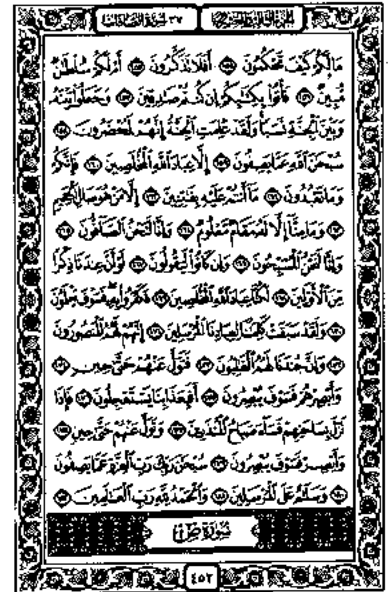 الجزء الثالث والعشرون ٣٧ سورة الصافات
مَا لَكُمْ كَيْفَ تَحْكُمُونَ ١٥٤ أَفَلَا تَذَكَّرُونَ ١٥٥ أَمْ لَكُمْ سُلْطَٰنٌ
مُّبِينٌ ١٥٦ فَأْتُوا۟ بِكِتَٰبِكُمْ إِن كُنتُمْ صَٰدِقِينَ ١٥٧ وَجَعَلُوا۟ بَيْنَهُۥ
وَبَيْنَ ٱلْجِنَّةِ نَسَبًا وَلَقَدْ عَلِمَتِ ٱلْجِنَّةُ إِنَّهُمْ لَمُحْضَرُونَ ١٥٨
سُبْحَٰنَ ٱللَّهِ عَمَّا يَصِفُونَ ١٥٩ إِلَّا عِبَادَ ٱللَّهِ ٱلْمُخْلَصِينَ ١٦٠ فَإِنَّكُمْ
وَمَا تَعْبُدُونَ ١٦١ مَا أَنتُمْ عَلَيْهِ بِفَٰتِنِينَ ١٦٢ إِلَّا مَنْ هُوَ صَالِ ٱلْجَحِيمِ
١٦٣ وَمَا مِنَّا إِلَّا لَهُۥ مَقَامٌ مَّعْلُومٌ ١٦٤ وَإِنَّا لَنَحْنُ ٱلصَّآفُّونَ ١٦٥
وَإِنَّا لَنَحْنُ ٱلْمُسَبِّحُونَ ١٦٦ وَإِن كَانُوا۟ لَيَقُولُونَ ١٦٧ لَوْ أَنَّ عِندَنَا ذِكْرًا
مِّنَ ٱلْأَوَّلِينَ ١٦٨ لَكُنَّا عِبَادَ ٱللَّهِ ٱلْمُخْلَصِينَ ١٦٩ فَكَفَرُوا۟ بِهِۦ فَسَوْفَ يَعْلَمُونَ
١٧٠ وَلَقَدْ سَبَقَتْ كَلِمَتُنَا لِعِبَادِنَا ٱلْمُرْسَلِينَ ١٧١ إِنَّهُمْ لَهُمُ ٱلْمَنصُورُونَ
١٧٢ وَإِنَّ جُندَنَا لَهُمُ ٱلْغَٰلِبُونَ ١٧٣ فَتَوَلَّ عَنْهُمْ حَتَّىٰ حِينٍ ١٧٤
وَأَبْصِرْهُمْ فَسَوْفَ يُبْصِرُونَ ١٧٥ أَفَبِعَذَابِنَا يَسْتَعْجِلُونَ ١٧٦ فَإِذَا
نَزَلَ بِسَاحَتِهِمْ فَسَآءَ صَبَاحُ ٱلْمُنذَرِينَ ١٧٧ وَتَوَلَّ عَنْهُمْ حَتَّىٰ حِينٍ ١٧٨
وَأَبْصِرْ فَسَوْفَ يُبْصِرُونَ ١٧٩ سُبْحَٰنَ رَبِّكَ رَبِّ ٱلْعِزَّةِ عَمَّا يَصِفُونَ
١٨٠ وَسَلَٰمٌ عَلَى ٱلْمُرْسَلِينَ ١٨١ وَٱلْحَمْدُ لِلَّهِ رَبِّ ٱلْعَٰلَمِينَ ١٨٢
سورة ص
٤٥٢